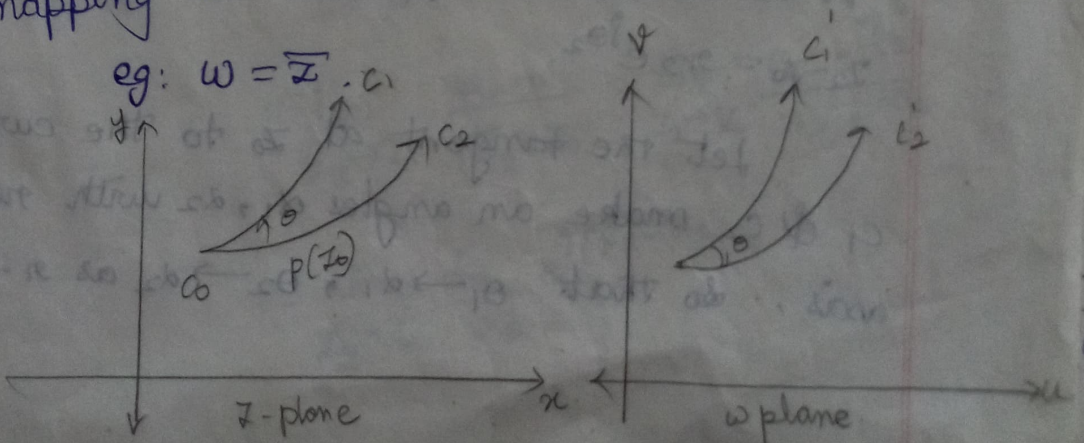 mapping
eg: w = z̅
y
C1
C2
θ
C0
P(z0)
x
z-plane
v
C1'
C2'
θ
u
w plane